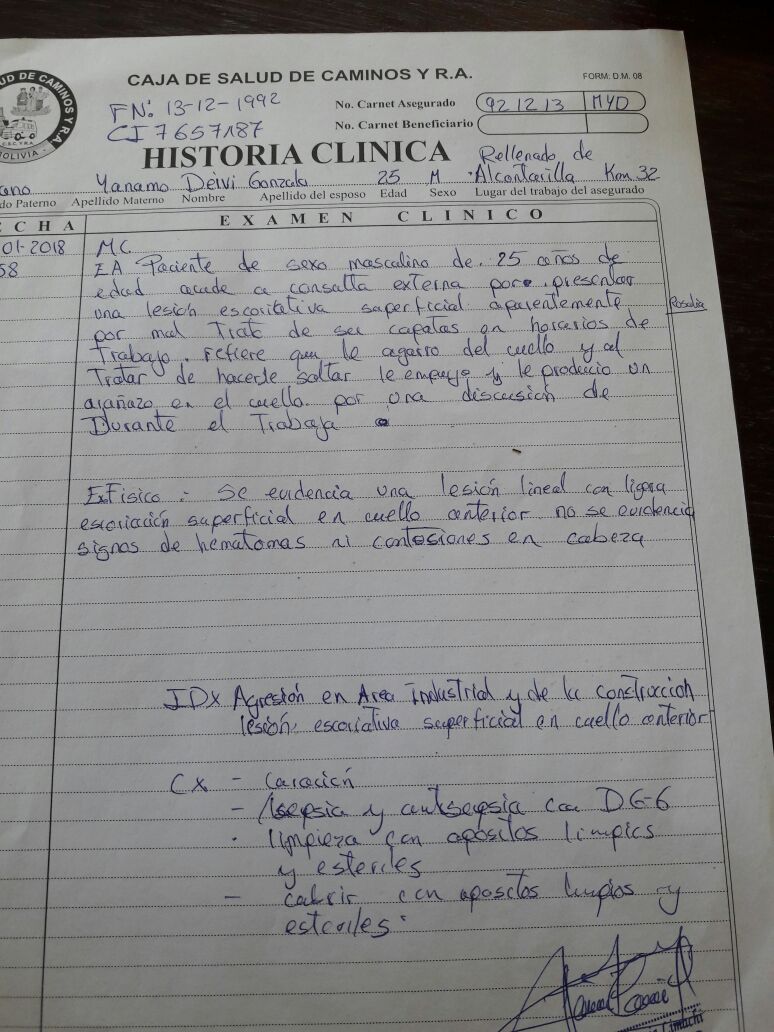 UD DE CAMINOS Y R.A.
C.S.C. Y R.A.
BOLIVIA
CAJA DE SALUD DE CAMINOS Y R.A.
FORM: D.M. 08
FN: 13-12-1992
No. Carnet Asegurado 921213 MYD
CI 7657187
No. Carnet Beneficiario
HISTORIA CLINICA
Rellenado de
ano Yanamo Deivi Gonzalo 25 M Alcontarilla Km 32
do Paterno Apellido Materno Nombre Apellido del esposo Edad Sexo Lugar del trabajo del asegurado
ECHA EXAMEN CLINICO
01-2018 MC
58 EA Paciente de sexo masculino de 25 años de
edad acude a consulta externa por presentar
una lesion escoritativa superficial aparentemente Rosalia
por mal Trato de su capatas en horarios de
Trabajo. refiere que le agarro del cuello y al
Tratar de hacerle soltar le empujo y le producio un
arañazo en el cuello por una discusion de
Durante el Trabaja
Ex Fisico: Se evidencia una lesión lineal con ligera
escoriación superficial en cuello anterior no se evidencia
signos de hematomas ni contosiones en cabeza
IDx Agresión en Area Industrial y de la construccion
lesión escoriativa superficial en cuello anterior
Cx - Curación
- Asepsia y antisepsia con DG-6
- limpieza con apositos limpios
y esteriles
- cubrir con apositos limpios y
esteriles.